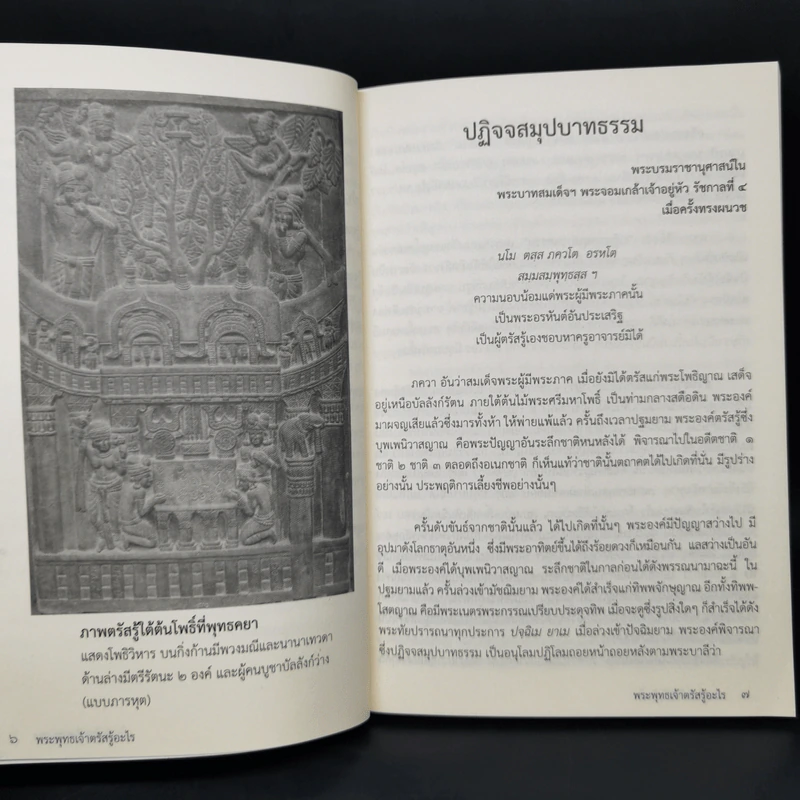 ภาพตรัสรู้ใต้ต้นโพธิ์ที่พุทธคยา
แสดงโพธิวิหาร บนกิ่งก้านมีพวงมณีและนานาเทวดา
ด้านล่างมีตรีรัตนะ ๒ องค์ และผู้คนบูชาบัลลังก์ว่าง
(แบบภารหุต)
๖ พระพุทธเจ้าตรัสรู้อะไร
ปฏิจจสมุปบาทธรรม
พระบรมราชานุศาสน์ใน
พระบาทสมเด็จฯ พระจอมเกล้าเจ้าอยู่หัว รัชกาลที่ ๔
เมื่อครั้งทรงผนวช
นโม ตสฺส ภควโต อรหโต
สมฺมสมฺพุทฺธสฺส ฯ
ความนอบน้อมแด่พระผู้มีพระภาคนั้น
เป็นพระอรหันต์อันประเสริฐ
เป็นผู้ตรัสรู้เองชอบหาครูอาจารย์มิได้
ภควา อันว่าสมเด็จพระผู้มีพระภาค เมื่อยังมิได้ตรัสแก่พระโพธิญาณ เสด็จ
อยู่เหนือบัลลังก์รัตน ภายใต้ต้นไม้พระศรีมหาโพธิ์ เป็นท่ามกลางสดือดิน พระองค์
มาผจญเสียแล้วซึ่งมารทั้งห้า ให้พ่ายแพ้แล้ว ครั้นถึงเวลาปฐมยาม พระองค์ตรัสรู้ซึ่ง
บุพเพนิวาสญาณ คือพระปัญญาอันระลึกชาติหนหลังได้ พิจารณาไปในอดีตชาติ ๑
ชาติ ๒ ชาติ ๓ ตลอดถึงอเนกชาติ ก็เห็นแท้ว่าชาตินั้นตถาคตได้ไปเกิดที่นั่น มีรูปร่าง
อย่างนั้น ประพฤติการเลี้ยงชีพอย่างนั้นๆ
ครั้นดับขันธ์จากชาตินั้นแล้ว ได้ไปเกิดที่นั้นๆ พระองค์มีปัญญาสว่างไป มี
อุปมาดังโลกธาตุอันหนึ่ง ซึ่งมีพระอาทิตย์ขึ้นได้ถึงร้อยดวงก็เหมือนกัน แลสว่างเป็นอัน
ดี เมื่อพระองค์ได้บุพเพนิวาสญาณ ระลึกชาติในกาลก่อนได้ดังพรรณนามาฉะนี้ ใน
ปฐมยามแล้ว ครั้นล่วงเข้ามัชฌิมยาม พระองค์ได้สำเร็จแก่ทิพพจักษุญาณ อีกทั้งทิพพ-
โสตญาณ คือมีพระเนตรพระกรรณเปรียบประดุจทิพ เมื่อจะดูซึ่งรูปสิ่งใดๆ ก็สำเร็จได้ดัง
พระทัยปรารถนาทุกประการ ปจฺฉิเม ยาเม เมื่อล่วงเข้าปัจฉิมยาม พระองค์พิจารณา
ซึ่งปฏิจจสมุปบาทธรรม เป็นอนุโลมปฏิโลมถอยหน้าถอยหลังตามพระบาลีว่า
พระพุทธเจ้าตรัสรู้อะไร ๗